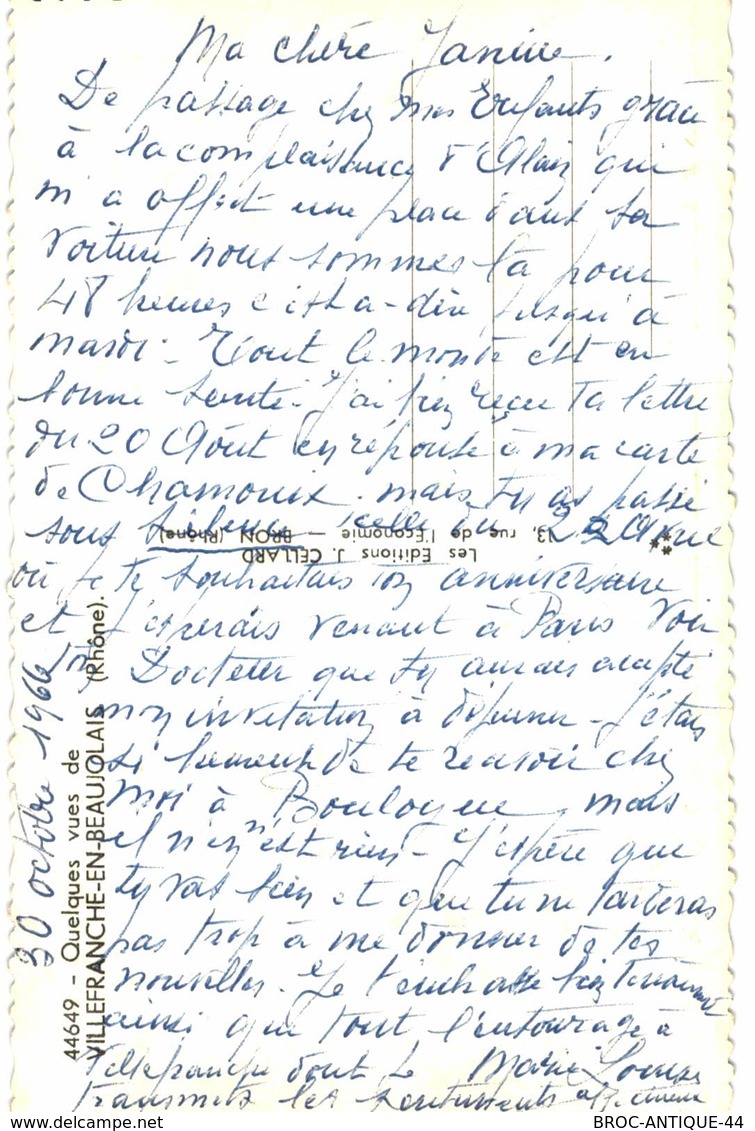 Ma chère Janine.
De passage chez mes Enfants grâce
à la complaisance d'Alain qui
m'a offert une place dans sa
voiture nous sommes là pour
48 heures c'est-a-dire jusqu'à
mardi - Tout le monde est en
bonne santé - J'ai bien reçue ta lettre
du 20 Août en réponse à ma carte
de Chamonix. mais tu as passé
sous silence celle du
où je te souhaitais ton anniversaire
et j'espérais venant à Paris voir
ton Docteur que tu aurais accepté
mon invitation à déjeuner - J'étais
si heureuse de te recevoir chez
moi à Boulogne, mais
il n'en est rien - J'espère que
tu vas bien et que tu ne tarderas
pas trop à me donner de tes
nouvelles. Je t'embrasse bien tendrement
ainsi que tout l'entourage à
Villefranche dont je
transmets les sentiments affectueux
Marie Louise
30 octobre 1966
44649 - Quelques vues de
VILLEFRANCHE-EN-BEAUJOLAIS (Rhône).
Les Editions J. CELLARD
13, rue de l'Économie — BRON (Rhône)
BROC-ANTIQUE-44